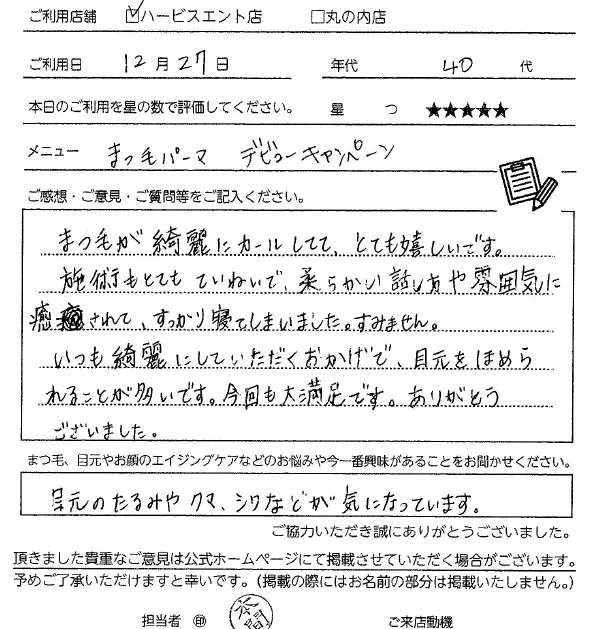 ご利用店舗 ☑ハービスエント店 □丸の内店
ご利用日 12月27日 年代 40代
本日のご利用を星の数で評価してください。 星 つ ★★★★★
メニュー まつ毛パーマ デビューキャンペーン
ご感想・ご意見・ご質問等をご記入ください。
まつ毛が綺麗にカールしてて、とても嬉しいです。
施術もとてもていねいで、柔らかい話し方や雰囲気に
癒されて、すっかり寝てしまいました。すみません。
いつも綺麗にしていただくおかげで、目元をほめら
れることが多いです。今回も大満足です。ありがとう
ございました。
まつ毛、目元やお顔のエイジングケアなどのお悩みや今一番興味があることをお聞かせください。
目元のたるみやクマ、シワなどが気になっています。
ご協力いただき誠にありがとうございました。
頂きました貴重なご意見は公式ホームページにて掲載させていただく場合がございます。
予めご了承いただけますと幸いです。（掲載の際にはお名前の部分は掲載いたしません。）
担当者 ㊞ ご来店動機